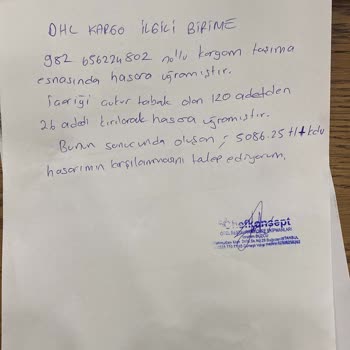 DHL KARGO İLGİLİ BİRİME
982 656224802 nolu kargom taşıma
esnasında hasara uğramıştır.
İçeriği çukur tabak olan 120 adetden
26 adedi kırılarak hasara uğramıştır.
Bunun sonucunda oluşan ; 5086.25 tl+kdv
hasarımın karşılanmasını talep ediyorum.